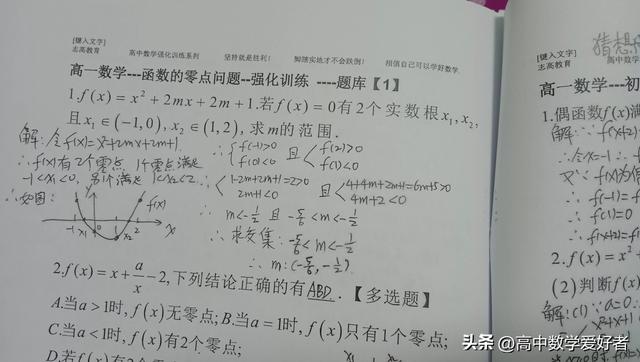 [键入文字]
志高教育 高中数学强化训练系列 坚持就是胜利! 脚踏实地才不会跌倒! 相信自己可以学好数学.
高一数学---函数的零点问题--强化训练 ----题库【1】
1.f(x)=x²+2mx+2m+1.若f(x)=0有2个实数根x₁,x₂,
且x₁∈(-1,0),x₂∈(1,2),求m的范围.
解:令f(x)=x²+2mx+2m+1.
∴f(x)有2个零点,1个零点满足
-1<x₁<0,另个满足1<x₂<2.
∴如图:
y
f(x)
-1 x₁ 0 1 x₂ 2 x
∴{f(-1)>0 f(0)<0 且{f(2)>0 f(1)<0
∴{1-2m+2m+1=2>0 2m+1<0 且{4+4m+2m+1=6m+5>0 4m+2<0
∴m<-1/2 且 -5/6<m<-1/2
∴求交集:-5/6<m<-1/2
∴m:(-5/6,-1/2)
2.f(x)=x+a/x-2,下列结论正确的有ABD.【多选题】
A.当a>1时,f(x)无零点;B.当a=1时,f(x)只有1个零点;
C.当a<1时,f(x)有2个零点;
D.若f(x)有2个零点
[键入文字]
志高教育
高一数学---初
1.偶函数f(x)满
解:∵f(x+2)=
∴令x=-1:
又∵f(x)为偶
∴f(-1)=f
∴f(1)=0
∴f(x+2)=f
2.f(x)=x²
(2)判断f(x)
解:(1)∵a=0:
头条 @高中数学爱好者